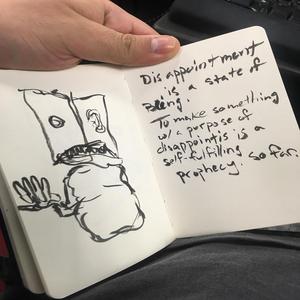 Disappointment
is a state of
Being.
To make something
w/ a purpose of
disappointis is a
self-fulfilling
prophecy. so far.